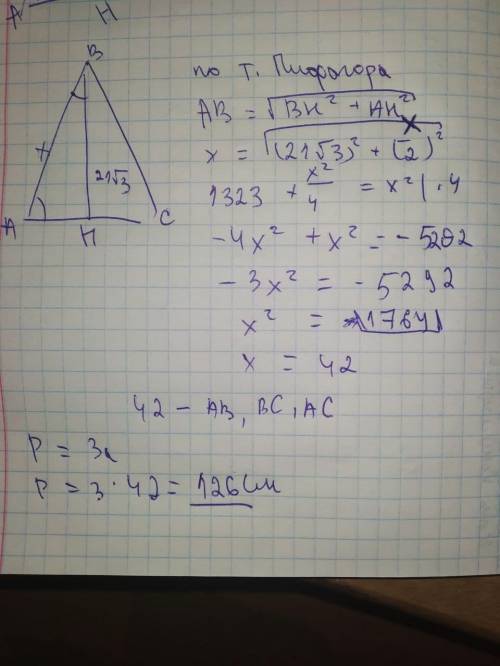 A H
B
21√3
x
A H C
по т. Пифагора
AB = √BH² + AH²
x = √(21√3)² + (x/2)²
1323 + x²/4 = x² | · 4
-4x² + x² = -5292
-3x² = -5292
x² = 1764
x = 42
42 - AB, BC, AC
P = 3a
P = 3 · 42 = 126 см